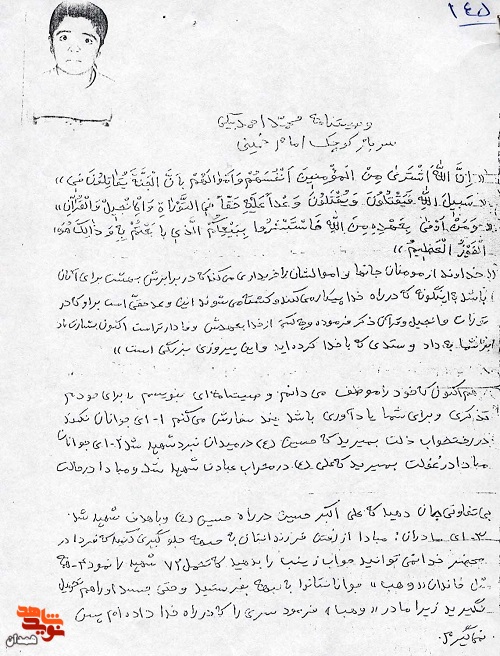 ۱۴۵
وصیتنامه محمد احمد بیگی
سرباز کوچک امام خمینی
«اِنَّ اللّهَ اَشْتَریٰ مِنَ الْمُؤْمِنینَ اَنْفُسَهُمْ وَاَمْوالَهُمْ بِاَنَّ لَهُمُ الْجَنَّةَ یُقاتِلُونَ فی»
«سَبیلِ اللّهِ فَیَقْتُلُونَ وَ یُقْتَلُونَ وَعْداً عَلَیْهِ حَقّاً فِی التَّوْراةِ وَالْاِنْجیلِ وَالْقُرْآنِ»
«وَمَنْ اَوْفیٰ بِعَهْدِهِ مِنَ اللّهِ فَاسْتَبْشِرُوا بِبَیْعِکُمُ الَّذی بایَعْتُمْ بِهِ وَ ذالِکَ هُوَ
الْفَوْزُ الْعَظیمُ»
«خداوند از مومنان جانها و اموالشان را خریداری می‌کند که در برابرش بهشت برای آنان
باشد باینگونه که در راه خدا پیکار می‌کنند و کشته می‌شوند این وعده حقی است بر او که در
تورات و انجیل و قرآن ذکر فرموده و چه کسی از خدا بعهدش وفادارتر است اکنون بشارت باد
بر شما به داد و ستدی که با خدا کرده‌اید و این پیروزی بزرگی است»
هم اکنون که خود را موظف می دانم و وصیتنامه ای بنویسم تا برای خودم
تذکری و برای شما یادآوری باشد چند سفارش می‌کنم ۱- ای جوانان نکند
در رختخواب ذلت بمیرید که حسین (ع) در میدان نبرد شهید شد ۲- ای جوانان
مبادا در غفلت بمیرید که علی (ع) در محراب عبادت شهید شد و مبادا در حالت
بی تفاوتی جان دهید که علی اکبر حسین در راه حسین (ع) و با هدف شهید شد
۳- ای مادران: مبادا از رفتن فرزندانتان به جبهه جلوگیری کنید که فردا در
محضر خدا نمی توانید جواب زینب را بدهید که تحمل ۷۲ شهید را نمود ۴- همه
مثل خاندان «وهب» جوانانتان را به جبهه بفرستید و حتی جسد او را هم تحویل
نگیرید زیرا مادر «وهب» فرمود سری را که در راه خدا داده ام پس
نمی‌گیرم.
نوید شاهد
همدان